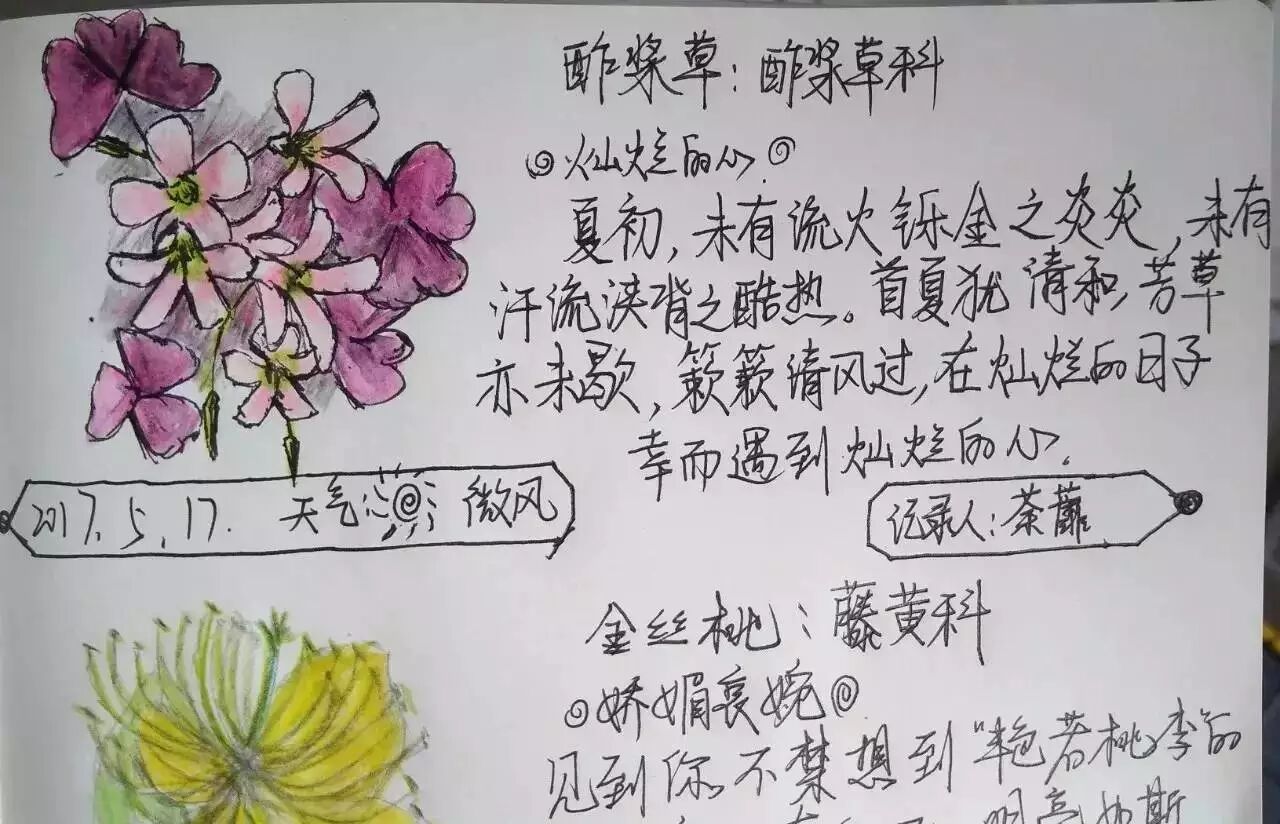 酢浆草：酢浆草科
灿烂的心
夏初，未有流火铄金之炎炎，未有
汗流浃背之酷热。首夏犹清和，芳草
亦未歇，簌簌清风过，在灿烂的日子
幸而遇到灿烂的心。
2017.5.17. 天气 微风
记录人：荼蘼
金丝桃：藤黄科
娇媚哀婉
见到你不禁想到“艳若桃李”的
明亮如斯